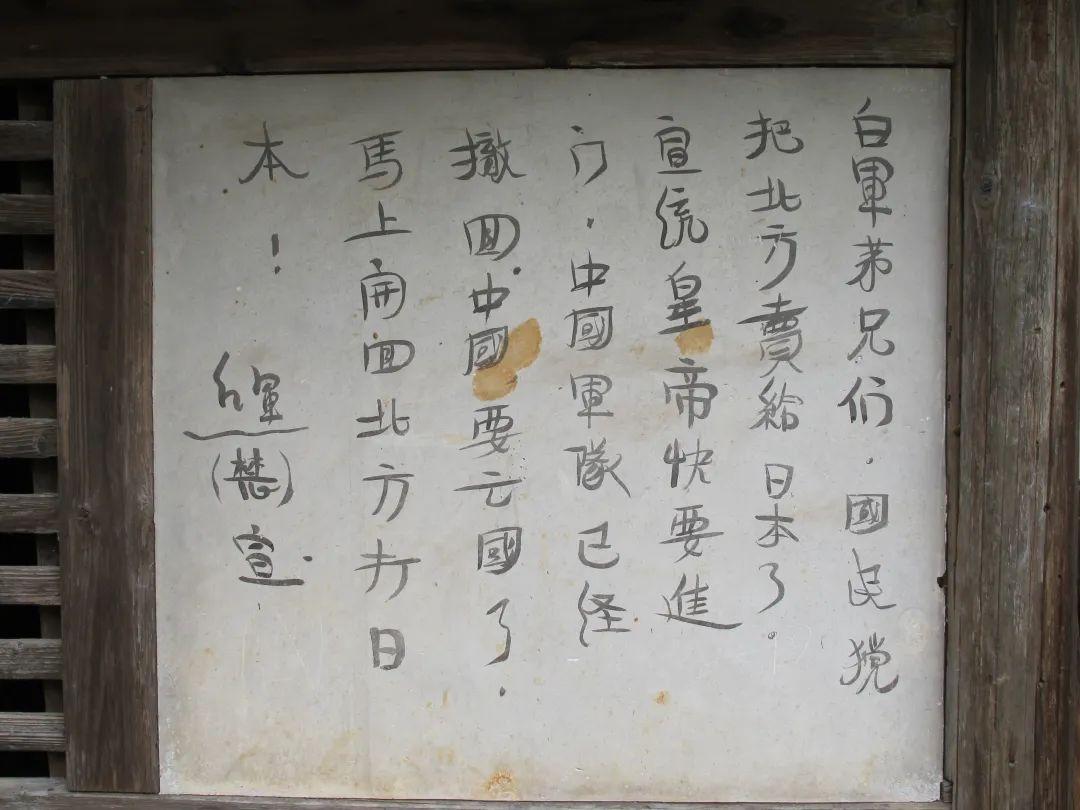 白軍弟兄们．國民党
把北方賣給日本了．
宣统皇帝快要進
门．中國軍隊已经
撤回中國要亡國了．
馬上開回北方打日
本！
红軍( )宣．